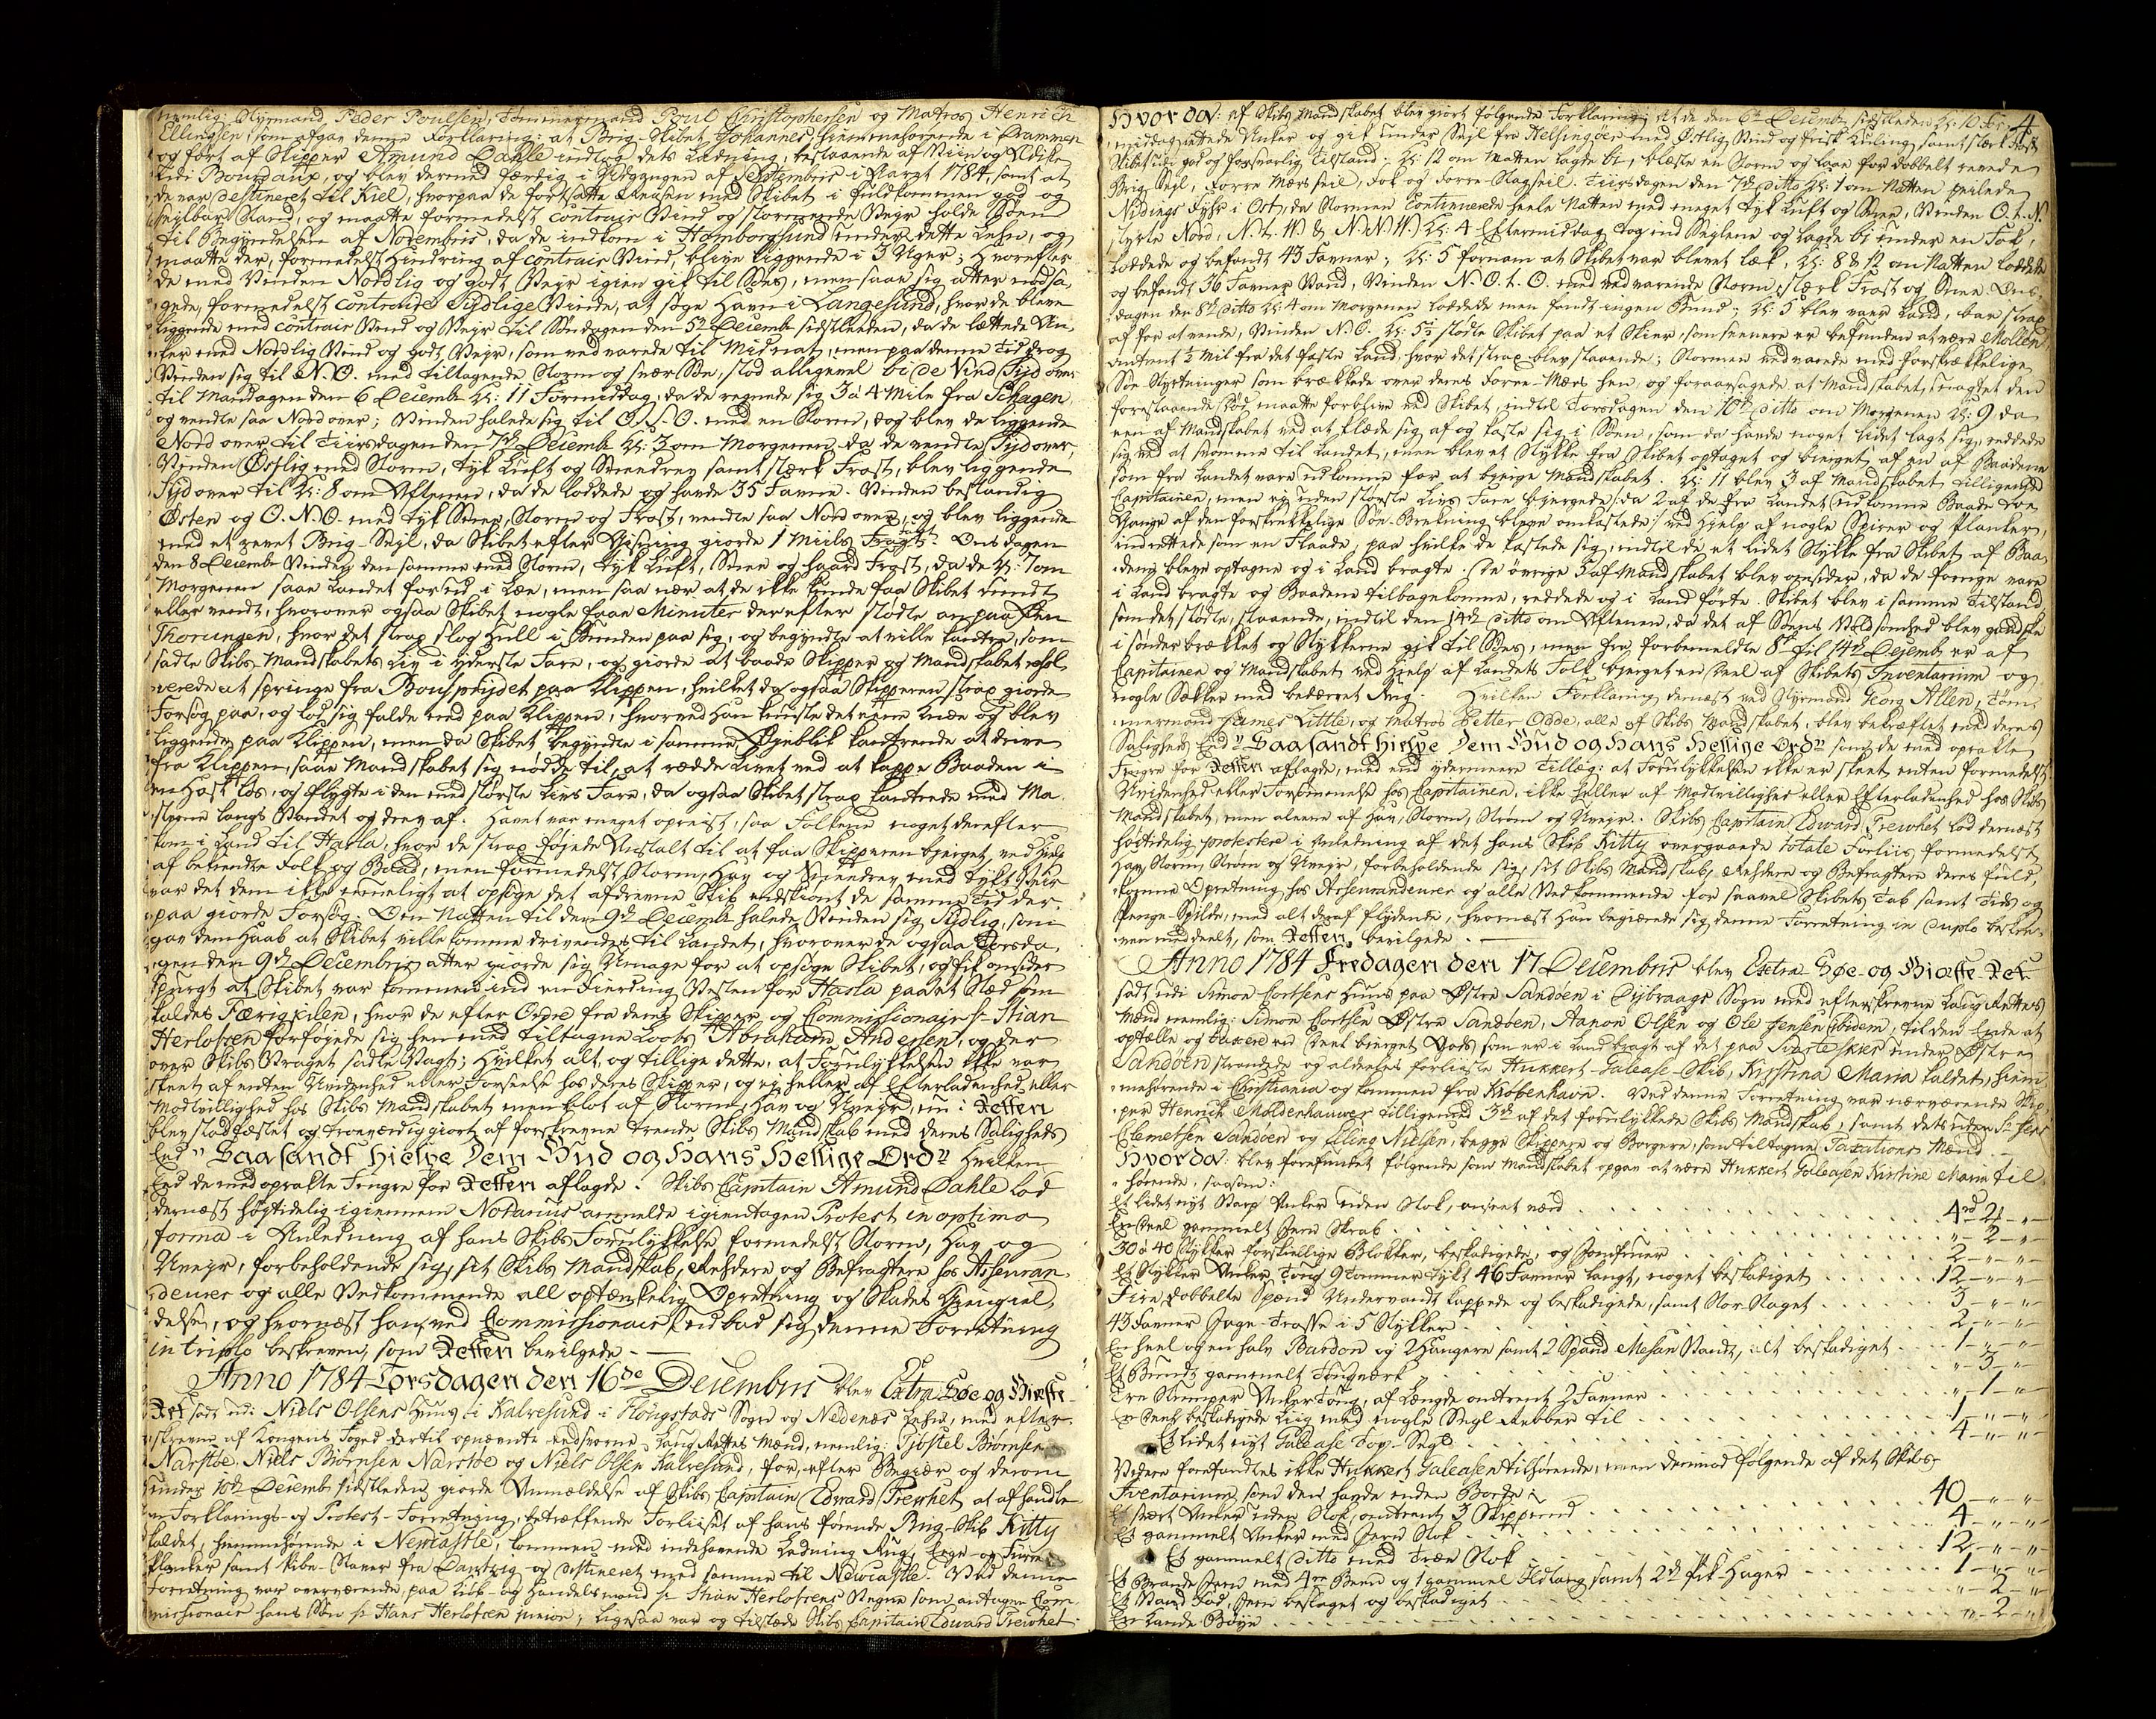 nemlig: Styrmand Peder Poulsen, Tømmermand Poul Christophersen og Matros Henrich
Ellingsen, som afgav denne Forklaring: at Brig-Skibet Johannes hiemmehørende i Drammen
og ført af Skipper Amund Dahle indtog dets Ladning, bestaaende af Viin og Ædike
udi Bourdaux, og blev dermed færdig i Udgangen af Septembris i Aaret 1784, samt at
de var destineret til Kiel, hvorpaa de fortsatte Reisen med Skibet i fuldkommen god og
seilbar Stand, og maatte formedelst contrair Vind og stormende Veyr holde Søen
til Begyndelsen af Novembris, da de indkom i Homborgsund under dette Lehn, og
maatte der, formedelst Hindring af contrair Vind, blive liggende i 3 Uger; Hvorefter
de med Vinden Nordlig og godt Veyr igien gik til Søes, men saae sig atter nødsa-
gede, formedelst contraire Sydlige Vinde, at søge Havn i Langesund, hvor de bleve
liggende med contrair Vind og Veyr til Søndagen den 5te Decembr sidstleden, da de lættede An-
ker med Nordlig Vind og godt Veyr, som vedvarede til Midnat, men paa denne Tid drog
Vinden sig til N.O. med tiltagende Storm og svær Søe, stod alligevel bi de Vind Syd over
til Mandagen den 6 Decembr Kl: 11 Formiddag, da de regnede sig 3 à 4 Mile fra Schagen,
og vendte saa Nord over; Vinden halede sig til O.S.O. med en Storm, dog blev de liggende
Nord over til Tiirsdagen den 7de Decembr Kl: 3 om Morgenen, da de vendte Syd over,
Vinden Østlig med Storm, tyk Luft og Sneedrev samt stærk Frost, blev liggende
Syd over til Kl: 8 om Aftenen, da de loddede og havde 35 Favne. Vinden bestandig
Østen og O.N.O. med tyk Snee, Storm og Frost, vendte saa Nord over, og blev liggende
med et revet Brig-Seyl, da Skibet efter Gisning giorde 1 Miils Fragt. Onsdagen
den 8 Decembr Vinden den samme med Storm, tyk Luft, Snee og haard Frost, da de Kl: 7 om
Morgenen saae Landet forud i Læe, men saa nær at de ikke kunde faa Skibet rundt
eller vendt, hvorover ogsaa Skibet nogle faae Minuter derefter stødte an paa Øen
Thorungen, hvor det strax slog Hull i Bunden paa sig, og begyndte at ville kantre, som
sadte Skibs Mandskabets Liv i yderste Fare, og giorde at baade Skipper og Mandskabet resol-
verede at springe fra Bouspriidet paa Klippen, hvilket da ogsaa Skipperen strax giorde
Forsøg paa, og lod sig falde ned paa Klippen, hvorved han knuste det eene Knæe og blev
liggende paa Klippen, men da Skibet begyndte i samme Øyeblik kantrende at drive
fra Klippen, saae Mandskabet sig nødde til, at rædde Livet ved at kappe Baaden i
en Hast løs, og flygte i den med største Livs Fare, da ogsaa Skibet strax kantrede med Ma-
sterne langs Vandet og drev af. Havet var meget opreist, saa Folkene noget derefter
kom i Land til Hasla, hvor de strax føjede Anstalt til at faa Skipperen bierget, ved Hielp
af bekiendte Folk og Baad, men formedelst Storm, Hav og Sneedrev med tykt Veir
var det dem ikke mueligt at opsøge det afdrevne Skib endskiønt de samme Tid der-
paa giorde Forsøg. Om Natten til den 9de Decembr halede Vinden sig Sydlig, som
gav dem Haab at Skibet ville komme drivendes til Landet, hvorover de ogsaa Torsda-
gen den 9de Decembris atter giorde sig Umage for at opsøge Skibet, og fik omsider
spurgt at Skibet var kommen ind en Fierding Vesten for Hasla paa et Stæd som
kaldes Færigkilen, hvor de efter Ordre fra deres Skipper og Commissionair Sr Stian
Herlofsen forføjede sig hen med tiltagne Loots Abraham Andersen, og der
over Skibs Vraget sadte Vagt; Hvilket alt, og tillige dette, at Forulykkelsen ikke var
skeet af enten Uvidenhed eller Forseelse hos deres Skipper, og ej heller af Efterladenhed eller
Modtvillighed hos Skibs Mandskabet men blot af Storm, Hav og Uveyr, nu i Retten
blev stadfæstet og troeværdig giort af forskrevne trende Skibs Mandskab med deres Saligheds
Eed "Saa sandt hielpe Dem Gud og Hans Hellige Ord" Hvilken
Eed de med oprakte Fingre for Retten aflagde. Skibs Capitain Amund Dahle lod
dernæst høytidelig igiennem Notarius anmelde igientagen Protest in optima
forma i Anledning af hans Skibs Forulykkelse formedelst Storm, Hav og
Uveyr, forbeholdende sig, sit Skibs Mandskab, Rehdere og Befragtere hos Assuran-
deurer og alle Vedkommende all optænkelig Opretning og Skades Giengiel-
delse, og hvornæst han ved Commissionair udbad sig denne Forretning
in triplo beskreven, som Retten bevilgede. —
Anno 1784 Torsdagen den 16de Decembris blev Extra Søe og Giæste-
Ret sadt udi Niels Olsens Huus i Kalvesund i Høugstads Sogn og Nedenæs Lehn, med efter-
skrevne af Kongens Foged dertil opnævnte eedsvorne Laug Rettes Mænd, nemlig: Tjøstel Biørnsen
Narstøe, Niels Biørnsen Narstøe og Niels Olsen Kalvesund, for, efter Begiær og derom
under 10de Decembr sidstleden giorde Anmældelse af Skibs Capitain Edward Trewhet, at afhandle
en Forklarings- og Protest-Forretning, betræffende Forliiset af hans førende Brig-Skib Kitty
kaldet, hiemmehørende i Newcastle, kommen med indehavende Ladning Rug, Eege- og Furre-
Planker samt Pibe-Staver fra Dantzig og destineret med samme til Newcastle. Ved denne
Forretning var overværende, paa Kiøb- og Handelsmand Sr Stian Herlofsens Vegne som antagen Com-
missionair hans Søn Sr Hans Herlofsen junior; ligesaa var og tilstæde Skibs Capitain Edward Trewhet.
4
Hvorda: af Skibs Mandskabet blev giort følgende Forklaring: at de den 6te Decembr sidstleden Kl: 10 For-
middag lættede Anker og gik under Seil fra Helsingøer med Østlig Vind og frisk Kuling, samt stærk Frost,
Skibet udi god og forsvarlig Tilstand. Kl: 12 om Natten lagde bi, blæste en Storm og laae for dobbelt revede
Brig-Seil, Forre Mers seil, Fok og Forre-Stagseil. Tiirsdagen den 7de ditto Kl: 1 om Natten peilede
Nidings Fyhr i Ost, da Stormen continuerede heele Natten med meget tyk Luft og Snee, Vinden O.t.N.
styrte Nord, N.t.W. & N.N.W. Kl: 4 Eftermiddag tog ind Seylene og lagde bi under en Fok,
loddede og befandt 43 Favner; Kl: 5 fornam at Skibet var blevet læk, Kl: 8 & 12 om Natten loddede
og befandt 36 Favner Vand, Vinden N.O.t.O. med vedvarende Storm, stærk Frost og Snee. Ons-
dagen den 8de ditto Kl: 4 om Morgenen loddede men fandt ingen Bund; Kl: 5 blev vaer Land, bar strax
af for at vende, Vinden N.O. Kl: 5½ stødte Skibet paa et Skier, som senere er befunden at være Mollen,
omtrent ½ Mil fra det faste Land, hvor det strax blev staaende; Stormen vedvarede med forskrækkelige
Søe Styrtninger som brækkede over deres Forre-Mers hen, og foraarsagede at Mandskabet, uagtet den
forestaaende Død maatte forblive ved Skibet, indtil Torsdagen den 10de ditto om Morgenen Kl: 9, da
een af Mandskabet ved at klæde sig af og kaste sig i Søen, som da havde noget lidet lagt sig, reddede
sig ved at svømme til Landet, men blev et Stykke fra Skibet optaget og bierget af en af Baadene
som fra Landet vare udkomne for at bierge Mandskabet. Kl: 11 blev 3 af Mandskabet tilligemed
Capitainen, men ej uden største Livs Fare biergede /: da 2 af de fra Landet udkomne Baade toe
Gange af den forskrekkelige Søe-Brekning bleve omkastede :/ ved Hielp af nogle Spirer og Planker,
indrettede som en Flaade, paa hvilke de kastede sig, indtil de et lidet Stykke fra Skibet af Baa-
dene bleve optagne og i Land bragte. De øvrige 5 af Mandskabet blev omsider, da de forrige vare
i Land bragte og Baadene tilbagekomne, reddede og i Land førte. Skibet blev i samme Tilstand
som det stødte, staaende, indtil den 14de ditto om Aftenen, da det af Søens Voldsomhed blev gandske
i sønderbrækket og Stykkerne gik til Søes, men fra forbemeldte 8de til 14de Decembr er af
Capitainen og Mandskabet ved Hielp af Landets Folk bierget en Deel af Skibets Inventarium og
nogle Sækker med bedærvet Rug. Hvilken Forklaring dernæst ved Styrmand Georg Allen, Tøm-
mermand James Little, og Matros Petter Odde, alle af Skibs Mandskabet, blev bekræftet med deres
Saligheds Eed "Saa sandt hielpe Dem Gud og Hans Hellige Ord" som de med oprakte
Fingre for Retten aflagde, med end ydermeere Tillæg: at Forulykkelsen ikke er skeet enten formedelst
Uvidenhed eller Forsømmelse hos Capitainen, ikke heller af Modtvillighed eller Efterladenhed hos Skibs
Mandskabet, men aleene af Hav, Storm, Strøm og Uveyr. Skibs Capitain Edward Trewhet lod dernæst
høytidelig protestere i Anledning af det hans Skib Kitty overgaaede totale Forliis formedelst
Hav, Storm, Strøm og Uveyr, forbeholdende sig, sit Skibs Mandskab, Rehdere og Befragtere deres fuld-
komne Opretning hos Assurandeurer og alle Vedkommende for saavel Skibets Tab samt Tids og
Penge-Spilde, med alt deraf flydende, hvornæst han begiærede sig denne Forretning in duplo beskre-
ven meddeelt, som Retten bevilgede. —
Anno 1784 Fredagen den 17 Decembris blev Extra Søe- og Giæste-Ret
sadt udi Simon Cortsens Huus paa Østre Sandøen i Dybvaags Sogn med efterskrevne Laug Rettes
Mænd nemlig: Simon Cortsen Østre Sandøen, Aanon Olsen og Ole Jensen ibidem, til den Ende at
optelle og taxere en Deel bierget Gods som er i Land bragt af det paa Sinste Skier under Østre
Sandøen strandede og aldeles forliiste Hukkert-Galease-Skib, Kirstina Maria kaldet, hiem-
mehørende i Christiania og kommen fra Kiøbenhavn. Ved denne Forretning var nærværende Skip-
per Henrich Moldenhauwer tilligemed 3de af det forulykkede Skibs Mandskab, samt desuden Sr Jens
Clemetsen Sandøen og Elling Nielsen, begge Skippere og Borgere, som tiltagne Taxations Mænd. —
Hvorda: blev forefundet følgende som Mandskabet opgav at være Hukkert Galeasen Kirstine Maria til-
hørende, saasom:
Et lidet nyt Varp Anker uden Stok, anseet værd . . . 4rd 2 " —
En Deel gammelt Jern Skrab . . . " - 2 - " —
30 à 40 Stykker forskiellige Blokker, beskadigede, og Jomfruer . . . 2 - " - " —
Et Stykker Anker Toug 9 Tommer tykt 46 Favner langt, noget beskadiget . . . 12 - " - " —
Fire dobbelte Spænd Undervandt kappede og beskadigede, samt Stor-Staget . . . 3 - " - " —
43 Favner Jage-Trosse i 5 Stykker . . . 2 - " - " —
En heel og en halv Bardon og 2 Hangere samt 2 Spænd Mesan Vandt, alt beskadiget . . . 1 - " - " —
Et Bundt gammelt Tougværk . . . " - 3 - " —
Tre Stumper Anker Toug, af Længde omtrent 2 Favner . . . " - 1 - " —
En Deel beskadigede Liig med nogle Segl Rebber til . . . 1 - " - " —
Et lidet nyt Galease Top-Segl . . . 4 - " - " —
Videre forefandtes ikke Hukkert Galeasen tilhørende, men derimod følgende af det Skibs-
Inventarium som den havde inden Borde:
Et svært Anker uden Stok, omtrent 3 Skippund . . . 40 - " - "
Et gammelt Anker med Jern Stok . . . 4 - " - " —
Et gammelt ditto med Træe Stok . . . 12 - " - " —
Et Brande Jern med 4re Been og 1 gammel Ildtang samt 2de Pik-Hager . . . 1 - " - " —
Et Vand Fad, Jern beslaget og beskadiget . . . " - 2 - " —
En Lande-Bøye . . . " - 2 - "